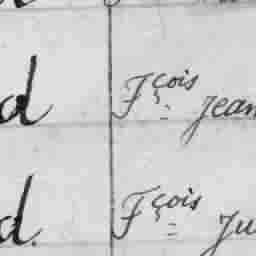 d Fçois Jean
d. Fçois Ju